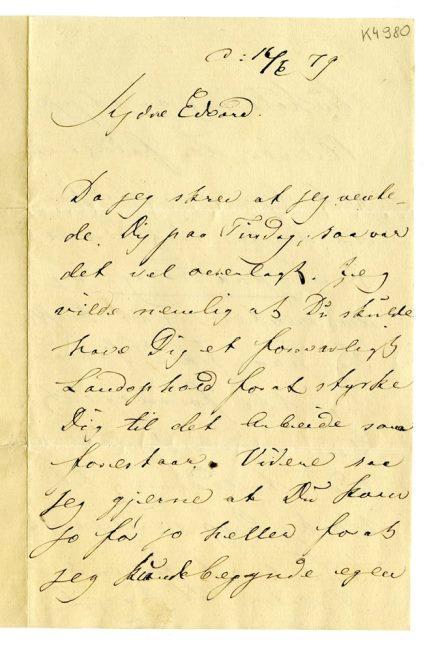 K4980
d: 16/6 79
Kjære Edvard.
Da jeg skrev at jeg vente-
de Dig paa Tirsdag, saa var
det vel overlagt. Jeg
vilde nemlig at Du skulde
have Dig et forsvarligt
Landophold for at styrke
Dig til det Arbeide som
forestaar. Videre saa
jeg gjerne at Du kom
jo før jo heller for at
jeg kunde begynde egen